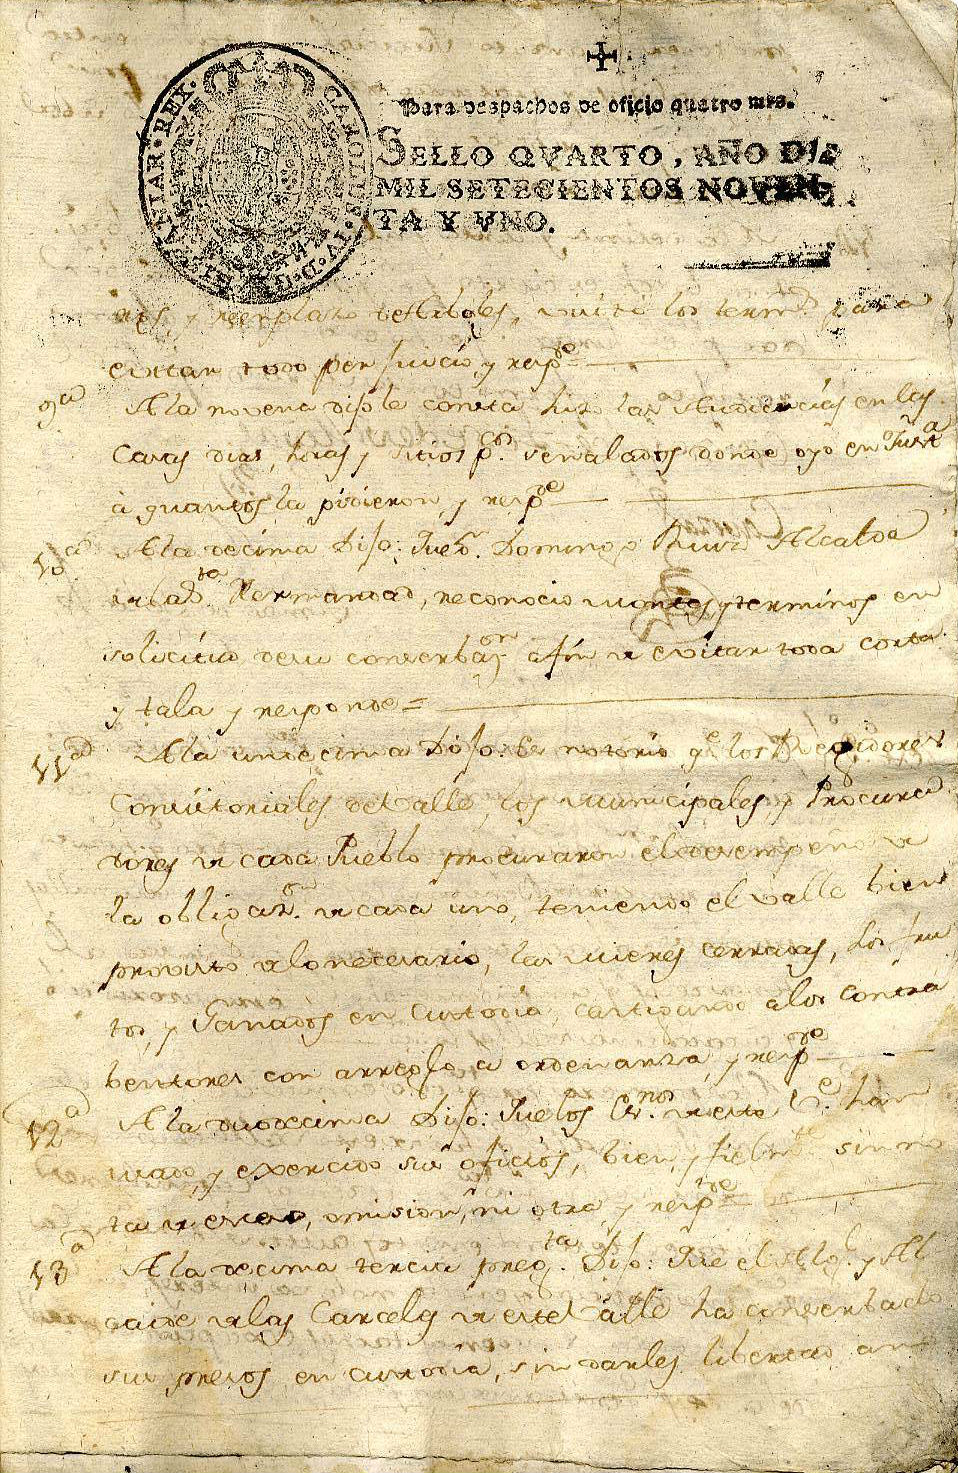 CAROLUS·IV·D·G· HISPANIAR·REX·
Para despachos de oficio quatro mrs.
SELLO QVARTO, AÑO DE
MIL SETECIENTOS NOVEN-
TA Y VNO.
y reemplazo de Arboles, visitó los term.s para
evitar todo perjuicio, y resp.de
9.a A la novena dijo le consta hizo las Audiencias en las
Casas dias, horas y sitios p.r señalados donde oyo en Just.a
à quantos la pidieron, y resp.de
10.a A la decima Dijo: Que D.n Domingo Ruiz Alcalde
de la S.ta Hermandad, reconocio montes y terminos en
solicitud de su conserbaz.on afin de evitar toda corta
y tala y responde =
11.a A la undecima Dijo: Es notorio q.e los Regidores
Consistoriales del Valle, los Municipales, y Procura
dores de cada Pueblo procuraron el desempeño de
la obligaz.n de cada uno, teniendo el Valle bien
provisto de lo necesario, las Mieses cerradas, los fru
tos, y Ganados en Custodia, castigando a los contra
bentores con arreglo a ordenanza, y resp.de
12.a A la duodecima Dijo: Que los Es.nos de este V.e han
usado, y exercido sus oficios, bien, y fielm.te sin no
ta de exceso, omision, ni otra y resp.de
13.a A la decima tercia preg.ta Dijo: Que el Alg.l y Al
caide de las Carceles de este Valle ha conserbado
sus presos en custodia, sin darles libertad an